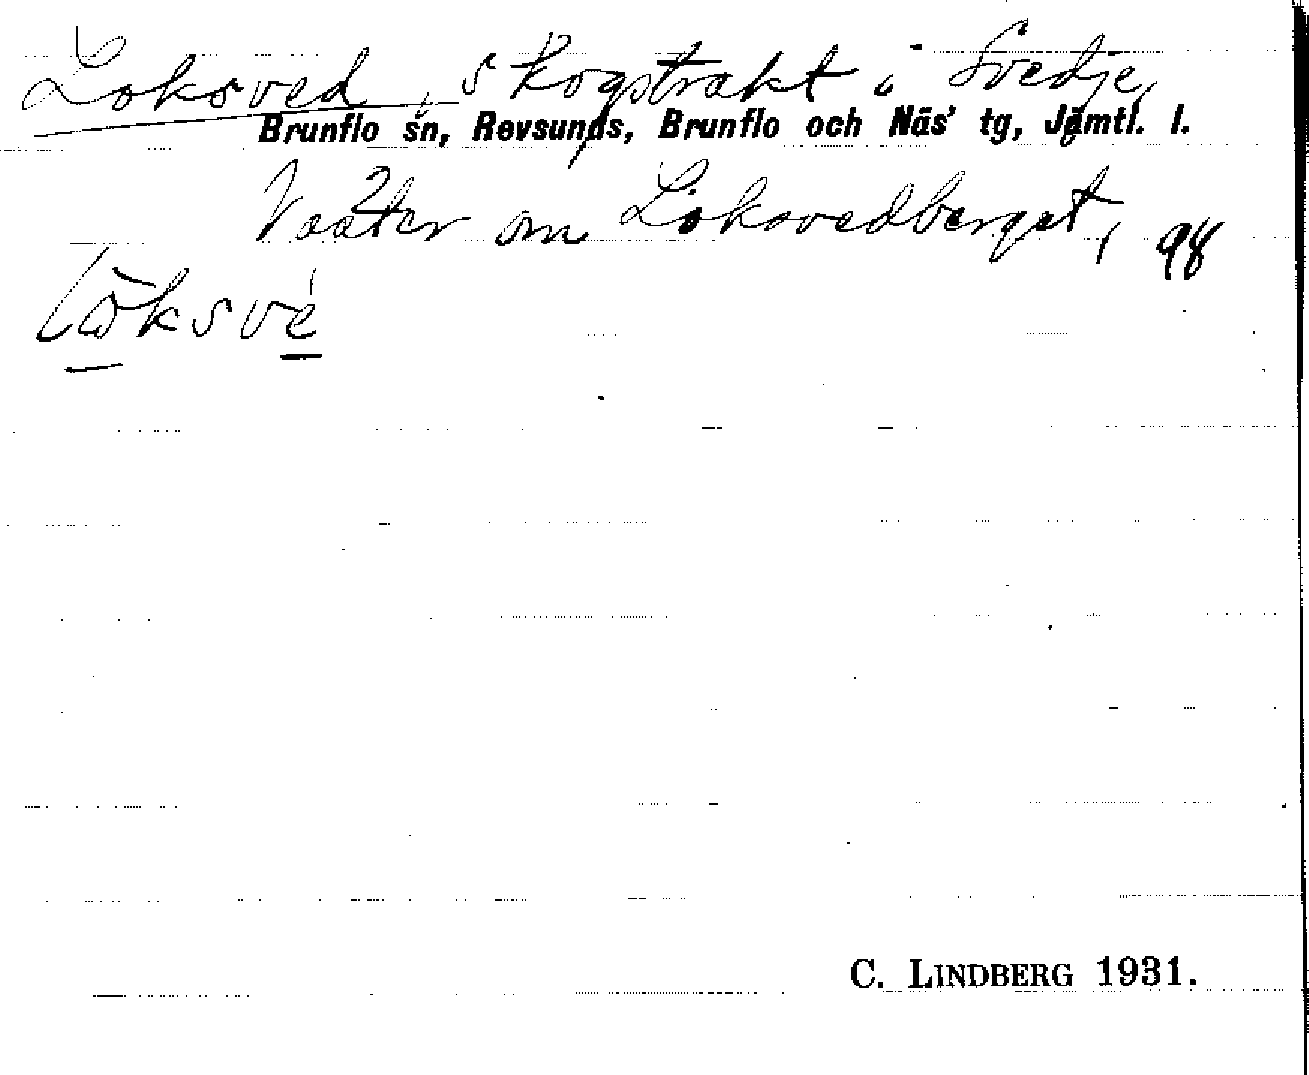 Loksved, skogstrakt i Svedje,
Brunflo sn, Revsunds, Brunflo och Näs' tg, Jämtl. l.
Väster om Loksvedberget, 98
löksvé
C. LINDBERG 1931.